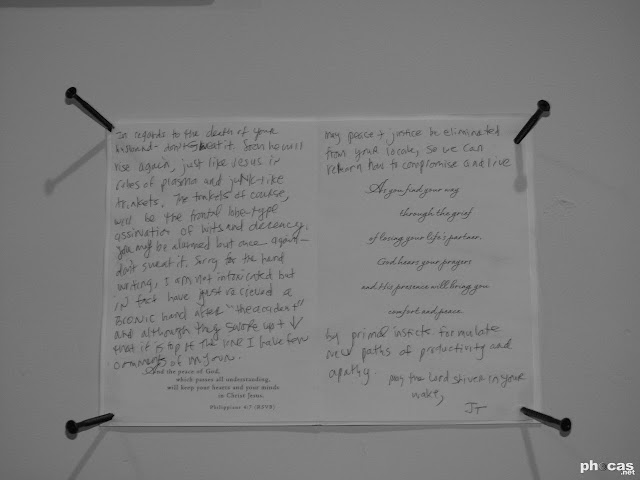 In regards to the death of your
husband - don't sweat it. Soon he will
rise again, just like Jesus in
robes of plasma and junk-like
trinkets. The trinkets of course,
will be the frontal lobe-type
of wits and decency.
you may be alarmed but once again -
don't sweat it. Sorry for the hand
writing, I am not intoxicated but
in fact have just recieved a
Bionic hand after "the accident"
and although they swore up + ↓
that it is top of the line I have few
of my own.
And the peace of God,
which passes all understanding,
will keep your hearts and your minds
in Christ Jesus.
Philippians 4:7 (RSV)
may peace + justice be eliminated
from your locale, so we can
return to compromise and live
As you find your way
through the grief
of losing your life's partner,
God hears your prayers
and His presence will bring you
comfort and peace.
by primal
new paths of productivity and
apathy. may the Lord shiver in your
wake,
JT
phocas
.net